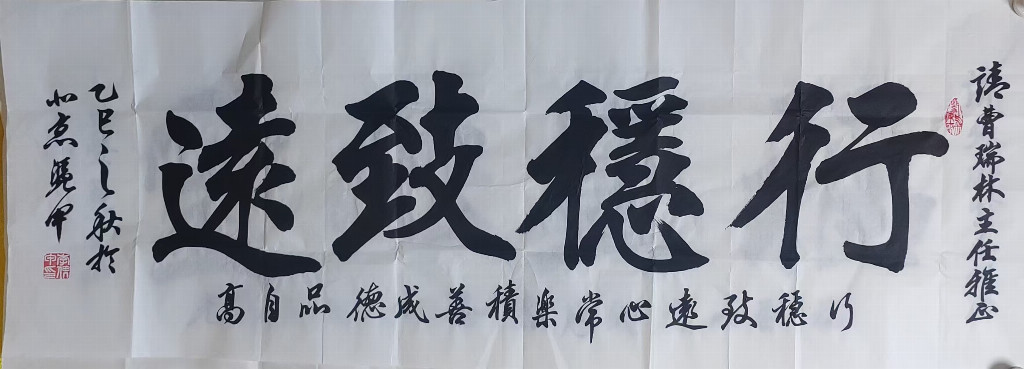 請曹瑞林主任雅正
行穩致遠
行穩致遠心常樂積善成德品自高
乙巳之秋於
北京 甲